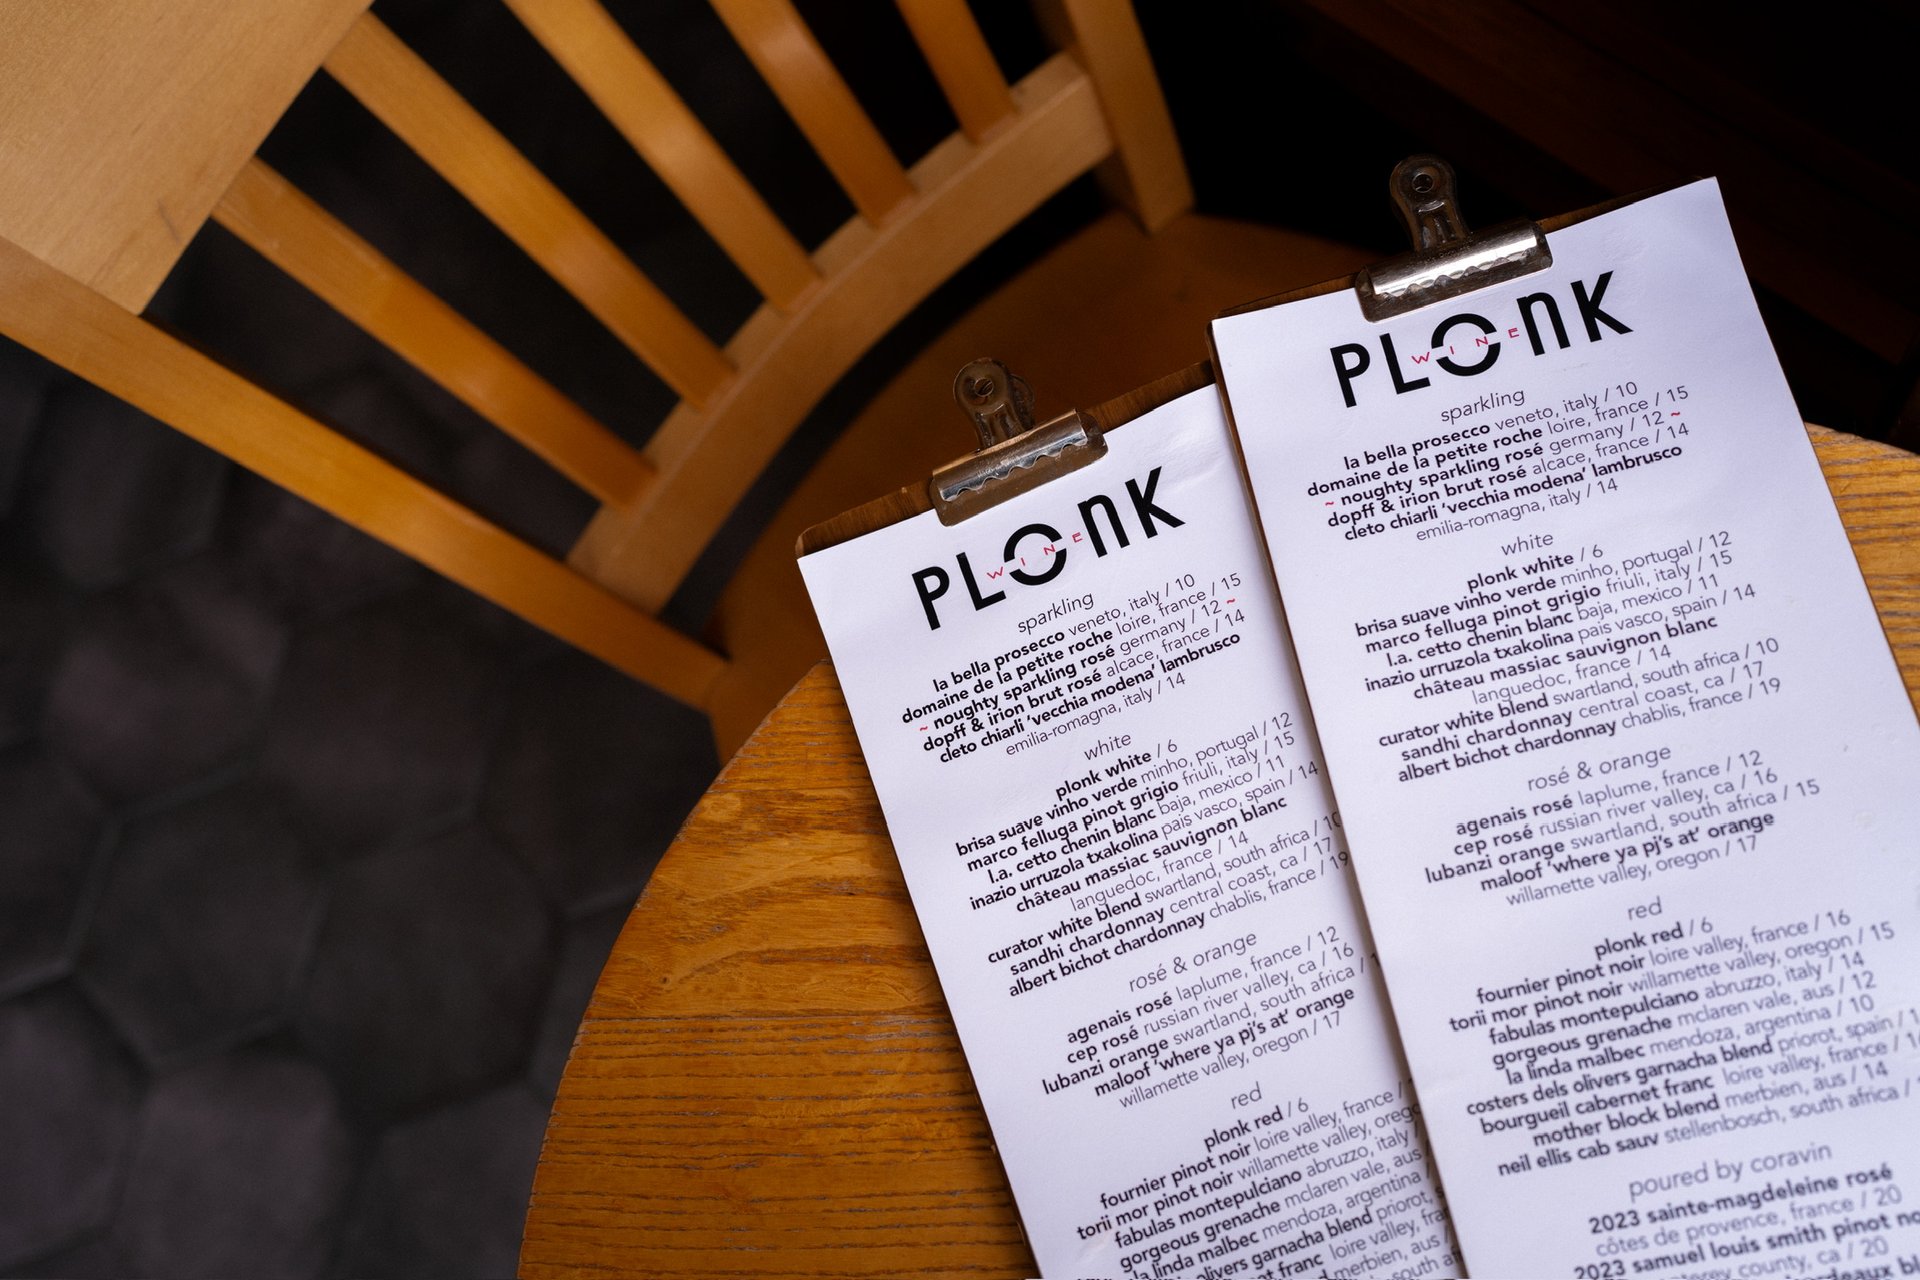 PLONK
WINE
sparkling
la bella prosecco veneto, italy / 10
domaine de la petite roche loire, france / 15
~ noughty sparkling rosé germany / 12 ~
dopff & irion brut rosé alcace, france / 14
cleto chiarli 'vecchia modena' lambrusco
emilia-romagna, italy / 14
white
plonk white / 6
brisa suave vinho verde minho, portugal / 12
marco felluga pinot grigio friuli, italy / 15
l.a. cetto chenin blanc baja, mexico / 11
inazio urruzola txakolina pais vasco, spain / 14
château massiac sauvignon blanc
languedoc, france / 14
curator white blend swartland, south africa / 10
sandhi chardonnay central coast, ca / 17
albert bichot chardonnay chablis, france / 19
rosé & orange
agenais rosé laplume, france / 12
cep rosé russian river valley, ca / 16
lubanzi orange swartland, south africa /
maloof 'where ya pj's at' orange
willamette valley, oregon / 17
red
plonk red / 6
fournier pinot noir loire valley, france /
torii mor pinot noir willamette valley,
fabulas montepulciano abruzzo, italy /
gorgeous grenache mclaren vale, aus
la linda malbec mendoza, argentina
olivers garnacha blend
franc loire valley,
merbien, aus
PLONK
WINE
sparkling
la bella prosecco veneto, italy / 10
domaine de la petite roche loire, france / 15
~ noughty sparkling rosé germany / 12 ~
dopff & irion brut rosé alcace, france / 14
cleto chiarli 'vecchia modena' lambrusco
emilia-romagna, italy / 14
white
plonk white / 6
brisa suave vinho verde minho, portugal / 12
marco felluga pinot grigio friuli, italy / 15
l.a. cetto chenin blanc baja, mexico / 11
inazio urruzola txakolina pais vasco, spain / 14
château massiac sauvignon blanc
languedoc, france / 14
curator white blend swartland, south africa / 10
sandhi chardonnay central coast, ca / 17
albert bichot chardonnay chablis, france / 19
rosé & orange
agenais rosé laplume, france / 12
cep rosé russian river valley, ca / 16
lubanzi orange swartland, south africa / 15
maloof 'where ya pj's at' orange
willamette valley, oregon / 17
red
plonk red / 6
fournier pinot noir loire valley, france / 16
torii mor pinot noir willamette valley, oregon / 15
fabulas montepulciano abruzzo, italy / 14
gorgeous grenache mclaren vale, aus / 12
la linda malbec mendoza, argentina / 10
costers dels olivers garnacha blend priorot, spain /
bourgueil cabernet franc loire valley, france /
mother block blend merbien, aus / 14
neil ellis cab sauv stellenbosch, south africa /
poured by coravin
2023 sainte-magdeleine rosé
côtes de provence, france / 20
2023 samuel louis smith pinot
county, ca / 20